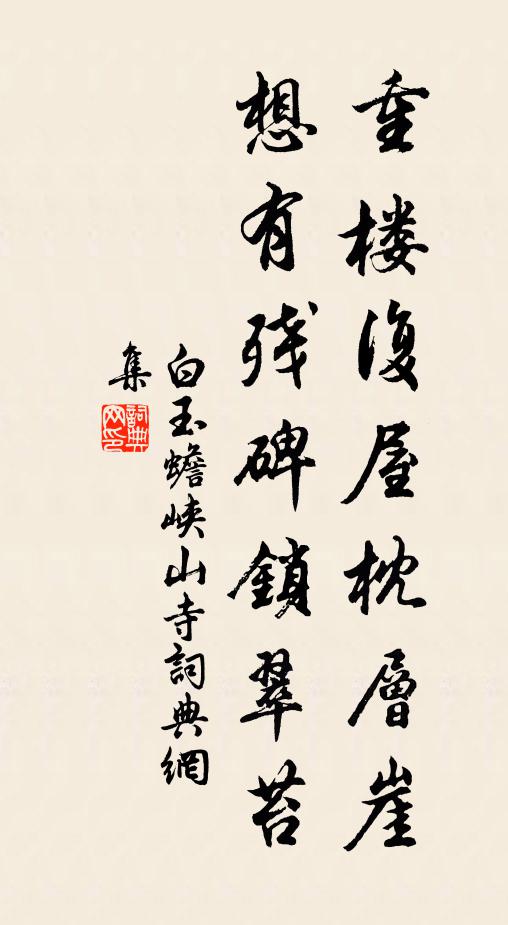 重楼復屋枕層崖
想有残碑鎖翠苔
白玉蟾峡山寺詞典網
集
詞典
网印